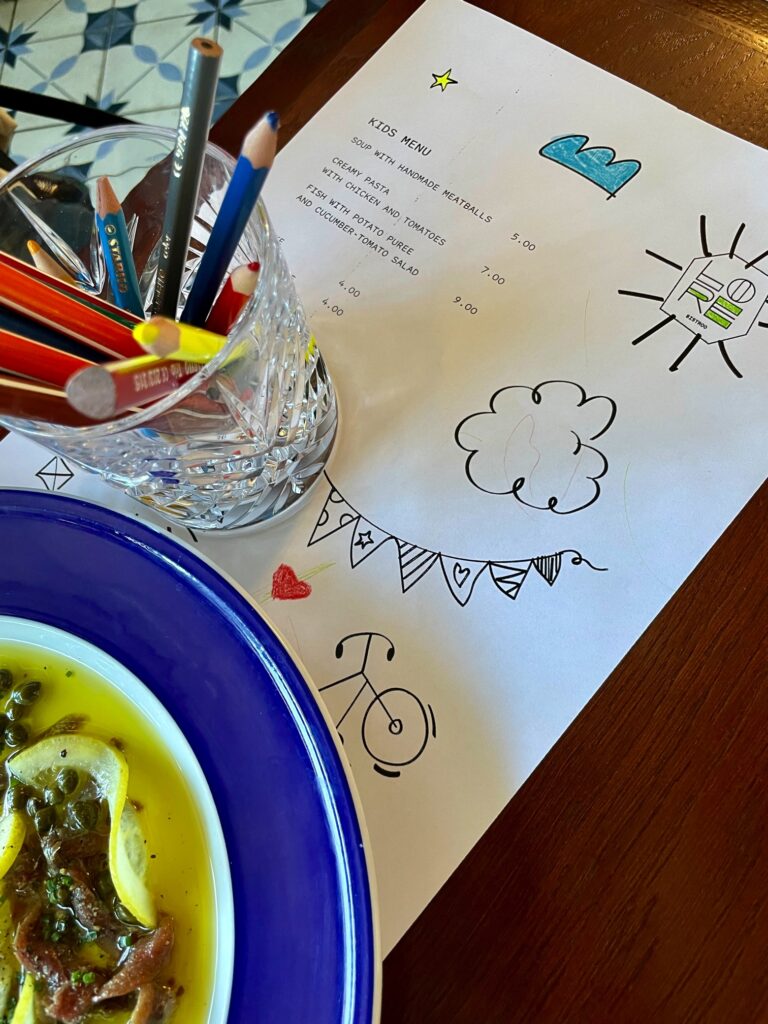 KIDS MENU
SOUP WITH HANDMADE MEATBALLS 5.00
CREAMY PASTA
WITH CHICKEN AND TOMATOES 7.00
FISH WITH POTATO PUREE
AND CUCUMBER-TOMATO SALAD 9.00
4.00
4.00
BISTROO
STABILO